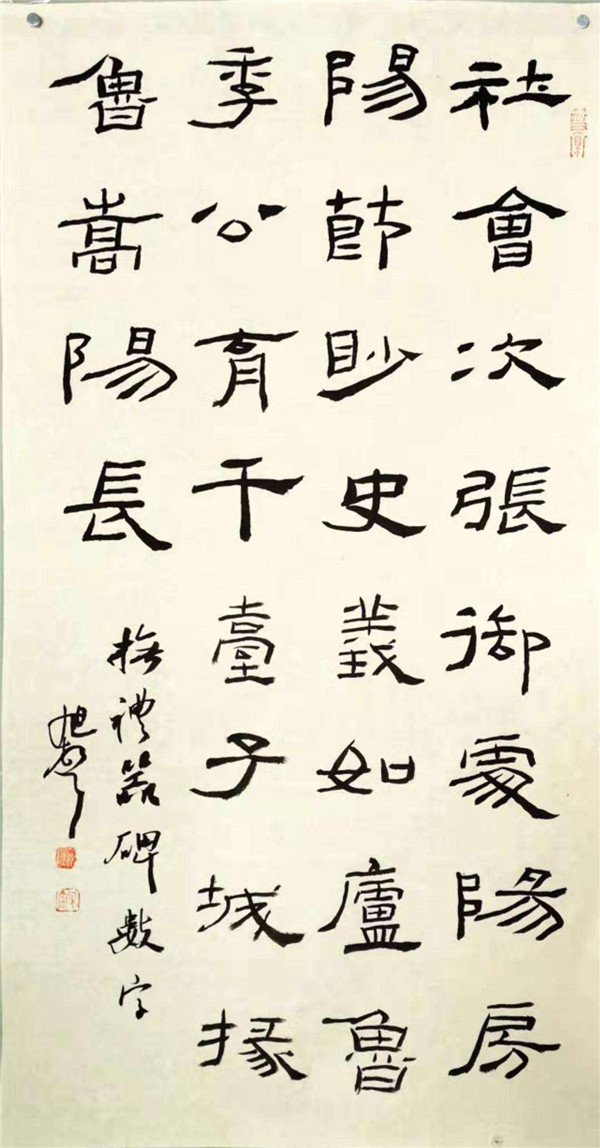 社會次張御處陽房
陽節眇史義如廬魯
季公育千臺子城掾
魯嵩陽長
撫禮器碑數字
旭